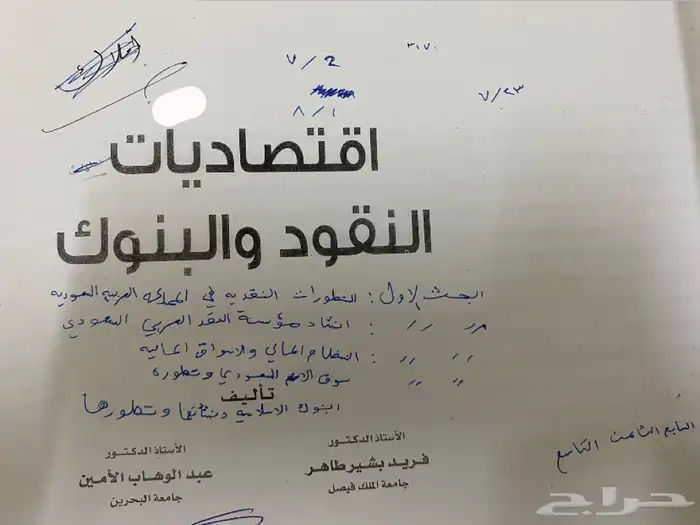 ٣١٧٠
٧/2
٧/٢٣
٨/١
اقتصاديات
النقود والبنوك
البحث الاول : التطورات النقديه في المملكه العربيه السعوديه
〃 〃 : انشاء مؤسسة النقد العربي السعودي
〃 〃 : النظام المالي والاسواق الماليه
〃 〃 سوق الاسهم السعودي وتطوره
تأليف
البنوك الاسلاميه ونشأتها وتطورها
الأستاذ الدكتور
فريد بشير طاهر
جامعة الملك فيصل
الأستاذ الدكتور
عبد الوهاب الأمين
جامعة البحرين
السابع الثامن التاسع
حراج